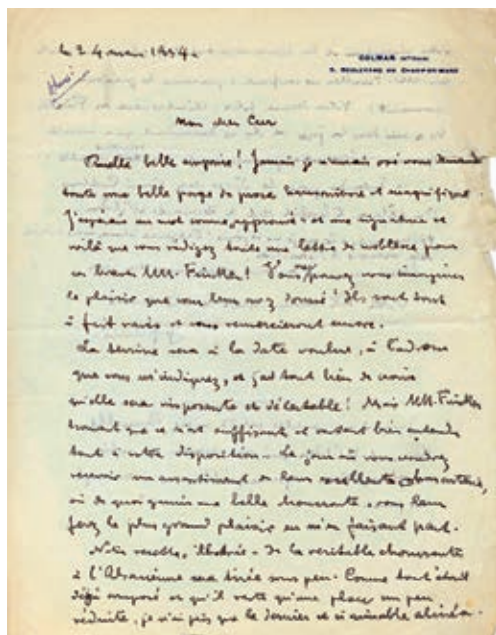 le 24 mai 1934.
COLMAR
BOULEVARD DU CHAMP-DE-MARS
Hansi
Mon cher Cur
Quelle belle surprise ! Jamais je n'aurais osé vous demander
toute une belle page de prose et magnifique.
J'espérais un mot comme, approuvé, et une signature et
voilà que vous rédigez toute une lettre de noblesse pour
ces braves MM. Finkler ! Vous pouvez vous imaginer
le plaisir que vous leur avez donné ! Ils sont tout
à fait ravis et vous remercieront encore.
La terrine sera à la date voulue, à l'adresse
que vous m'indiquez, et j'ai tout lieu de croire
qu'elle sera imposante et délectable ! Mais MM. Finkler
trouvent que ce n'est suffisant et restent bien entendu
tout à votre disposition - le jour où vous voudrez
recevoir un assortiment de leurs excellentes
ou de quoi garnir une belle choucroute, vous leur
ferez le plus grand plaisir en m'en faisant part.
Notre recette, illustrée - de la véritable choucroute
à l'Alsacienne sera tirée sous peu. Comme tout était
déjà composé et qu'il reste qu'une place un peu
réduite, je n'ai pris que le dernier et si aimable alinéa.